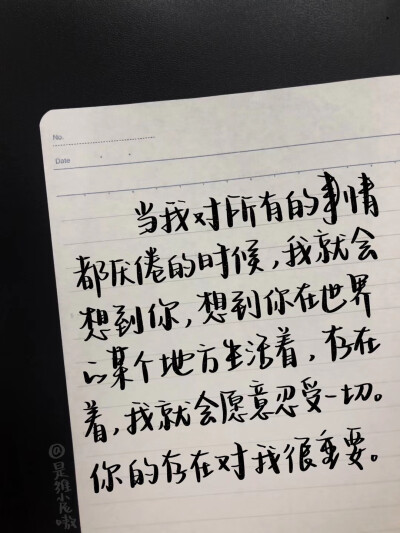 No.
Date
当我对所有的事情
都厌倦的时候,我就会
想到你,想到你在世界
的某个地方生活着,存在
着,我就会愿意忍受一切。
你的存在对我很重要。
@是维小尼嗷